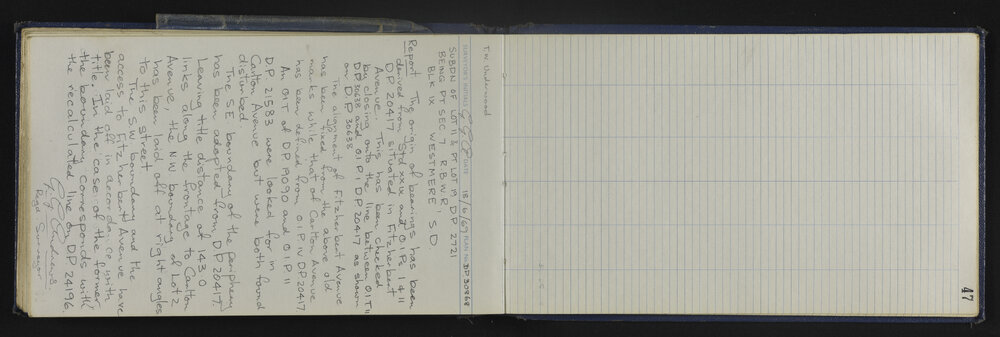 T.W. Underwood
SURVEYOR'S INITIALS DATE 18/6/69 PLAN No. DP 30868
SUBDN OF LOT 11 & PT LOT 19 DP 2721
BEING PT SEC 7 R.B.W.R.
BLK IX WESTMERE S D
Report The origin of bearings has been
derived from Std XXIX and O.I.Ps 14 11
D.P 20417 situated in Fitzherbert
Avenue. This has been checked
by closing onto the line between O I T 11
D.P 30638 and O I P 1 D.P 20417 as shown
on D.P 30638
The alignment of Fitzherbert Avenue
has been fixed from the above old
marks while that of Carlton Avenue
has been defined from O I P V DP 20417
An O I T of DP 19090 and O I P 11
D.P. 21583 were looked for in
Carlton Avenue but were both found
disturbed.
The SE boundary of the periphery
has been adopted from D P 20417.
Leaving title distance of 143.0
links along the frontage to Carlton
Avenue, the NW boundary of Lot 2
has been laid off at right angles
to this street
The SW boundary and the
access to Fitzherbert Avenue have
been laid off in accordance with
title. In the case of the former
the boundary corresponds with
the recalculated line on DP 24196.
Andrews.
Regd Surveyor
47